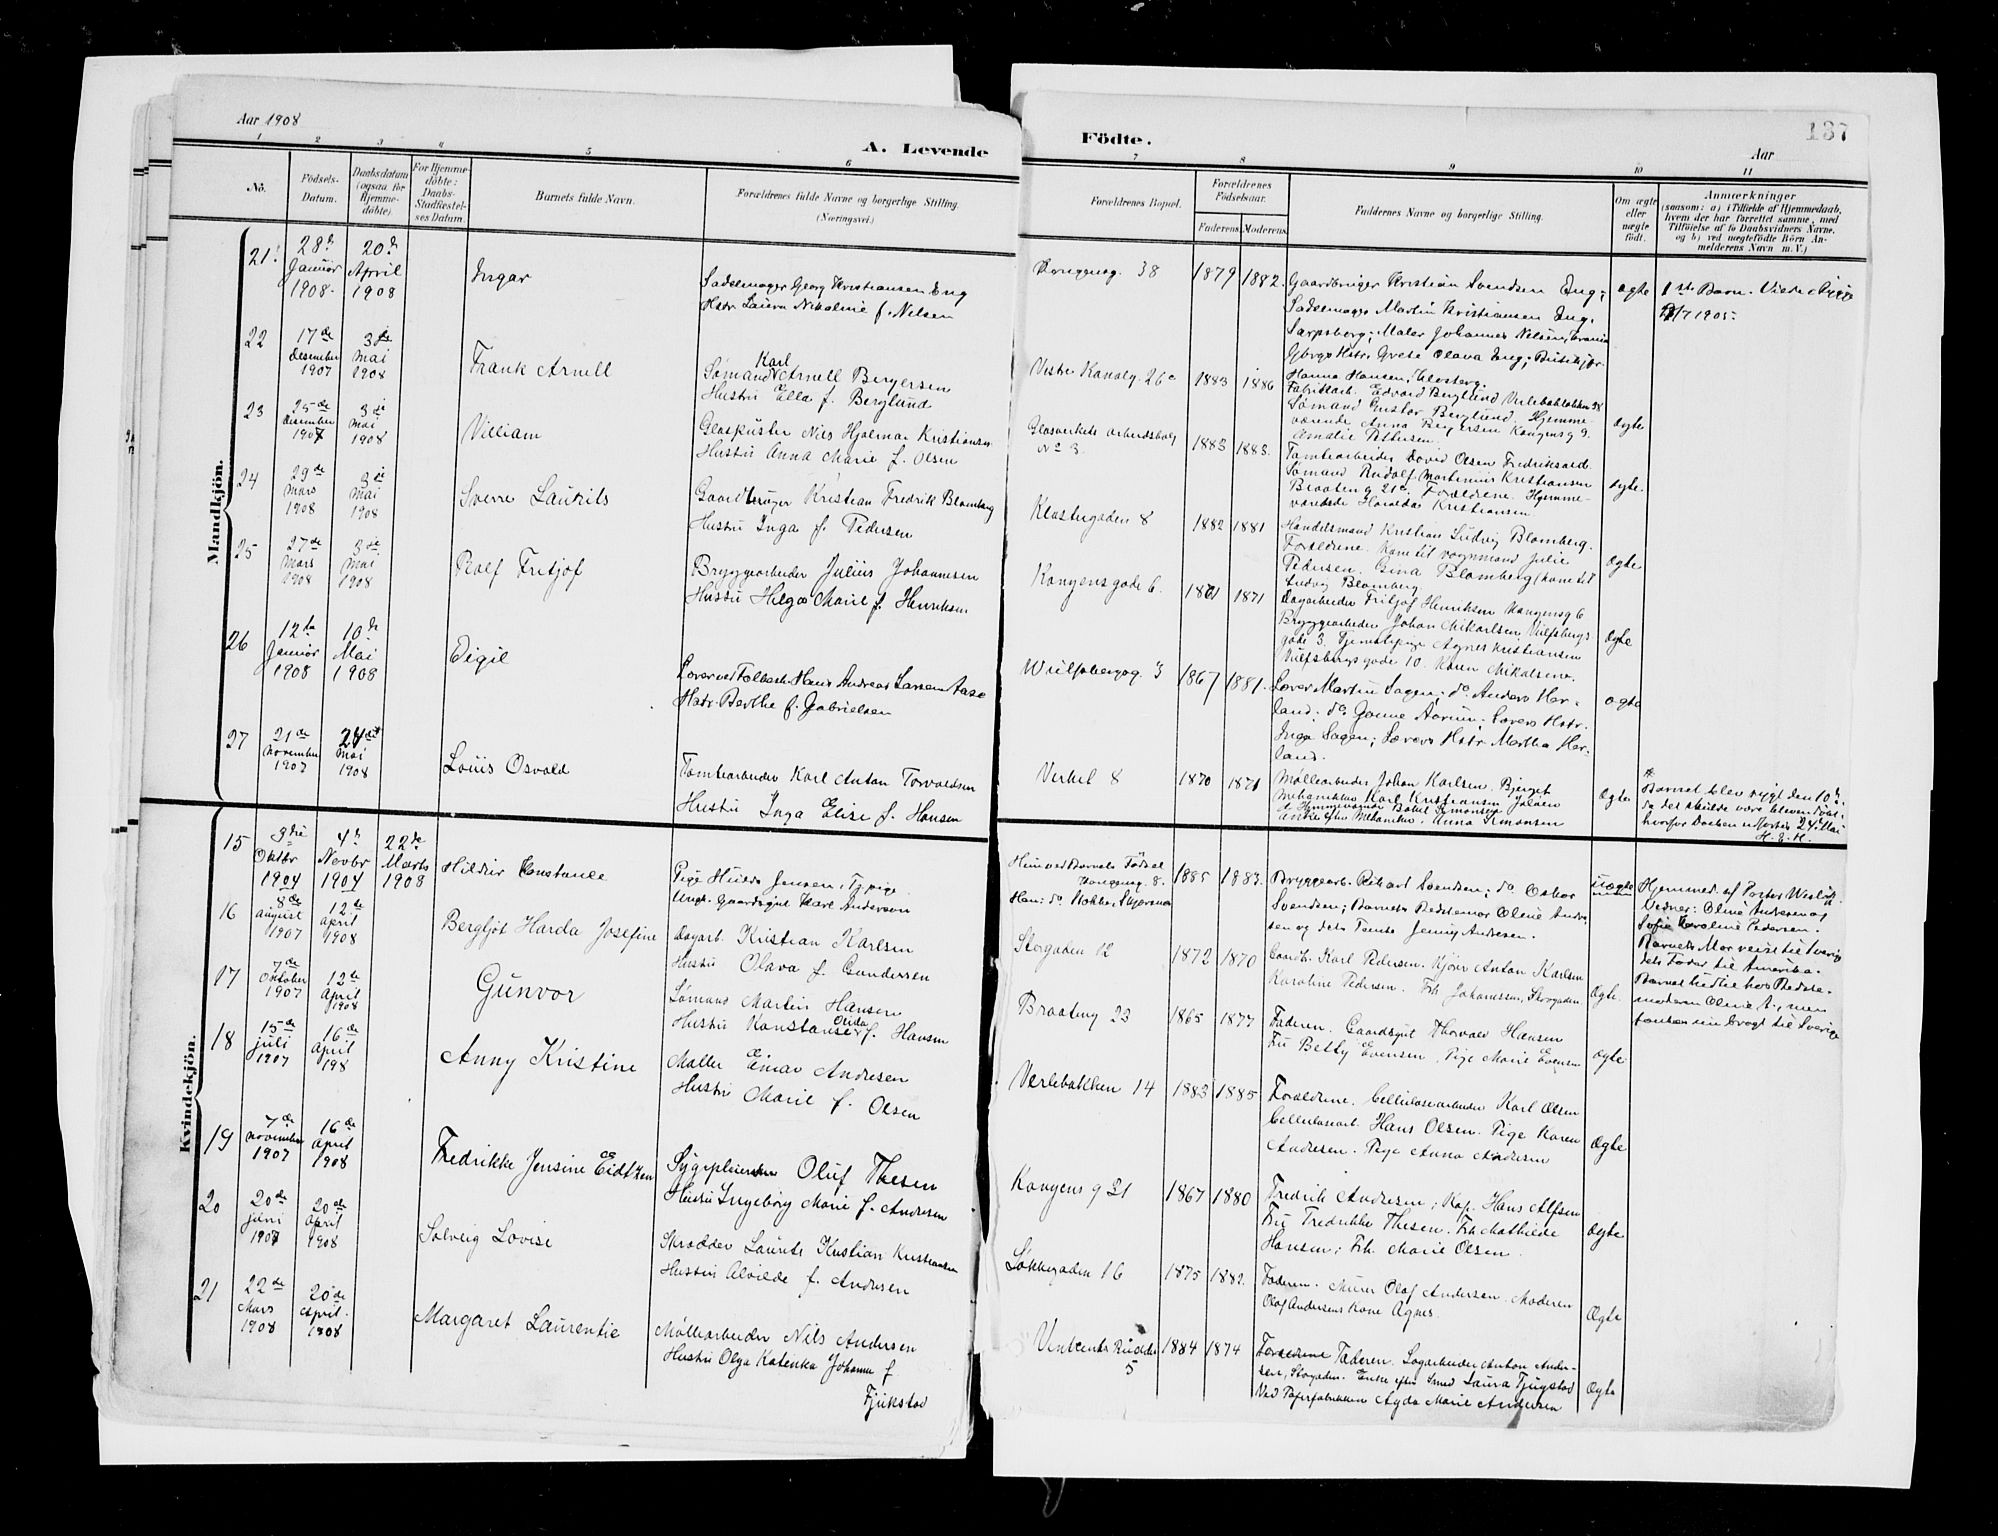 Aar 1908
A. Levende
Födte.
137
Aar
1
2
3
4
5
6
7
8
9
10
11
No.
Födsels-
Datum.
Daabsdatum
(ogsaa for
Hjemme-
döbte)
For Hjemme-
döbte:
Daabs-
Stadfæstel-
ses Datum.
Barnets fulde Navn.
Forældrenes fulde Navne og borgerlige Stilling.
(Næringsvei.)
Forældrenes Bopæl.
Forældrenes
Födselsaar.
Faderens
Moderens
Faddernes Navne og borgerlige Stilling.
Om ægte
eller
uægte
födt.
Anmærkninger
(saasom: a) i Tilfælde af Hjemmedaab,
hvem der har forrettet samme, med
Tilföielse af to Daabsvidners Navne,
og b) ved uægtefödte Börn An-
melderens Navn m. V.)
Mandkjön.
21
28de
Januar
1908
20de
April
1908
Ingar
Sadelmager Georg Kristiansen Eng
Hstr. Laura Nikoline f. Nelsen
38
1879
1882.
Gaardbruger Kristian Svendsen Eng;
Sadelmager Martin Kristiansen Eng,
Sarpsborg; Maler Johannes Nelsen,
Hstr. Grete Olava Eng;
Hanna Hansen,
ægte
1ste Barn. Viede i Rygge
1905
22
17de
desember
1907
3die
mai
1908
Frank Arnell
Karl
Sømand Arnell Bergersen
Hustru Ella f. Berglund
Vestre Kanalg. 26
1883
1886
Fabrikarb. Edvard Berglund Verlebakken 38
Sømand Gustav Berglund. Hjemme-
værende Anna Bergersen Kongensg 9.
Amalie Pettersen.
Ægte
23
25de
desember
1907
3die
mai
1908
Villiam
Glaspuster Nils Hjalmar Kristiansen
Hustru Anna Marie f. Olsen
Glasverkets arbeidsbolig
No 3
1883
1883.
Tomtearbeider David Olsen Fredriksald.
Sømand Rudolf Martinius Kristiansen
Braaten g 21. Forældrene. Hjemme-
værende Haralda Kristiansen
Ægte.
24
29de
mars
1908
3die
mai
1908
Sverre Laurits
Gaardbruger Kristian Fredrik Blomberg
Hustru Inga f. Pedersen
Klostergaden 8
1882
1881
Handelsmand Kristian Ludvig Blomberg.
Forældrene. Kone til vognmand Julie
Pedersen. Gina Blomberg (kone til
Ludvig Blomberg
Ægte
25
27de
mars
1908
3die
mai
1908
Rolf Fritjof
Bryggearbeider Julius Johannesen
Hustru Helga Marie f. Henriksen
Kongensgade 6.
1871
Dagarbeider Fritjof Henriksen Kongensg 6
Bryggearbeider Johan Mikalsen, Vulfsbergs
gade 3. Tjenestepige Agnes Kristiansen
Vulfsbergsgade 10. Karen Mikalsen.
Ægte
26
12te
Januar
1908
10de
Mai
1908
Eigil
Hans Andreas Larsen Aase
Hstr. Berthe f. Gabrielsen
Wulfsbergsg. 3
1867
1881.
Loser Martin Sagen; do. Anders Her-
land; do. Aarum; Losers Hstr.
Inga Sagen; Losers Hstr. Martha Her-
land.
ægte
27
21de
november
1907
24de
mai
1908
Louis Osvald
Tomtearbeider Karl Anton Torvaldsen
Hustru Inga Elise f. Hansen
Verket 8
1870
1871
Møllearbeider Johan Karlsen. Bjerget
Mekanikker Karl Kristiansen Jeløen
Hjemmeværende Bolet Simonsen
Enke efter Mekaniker. Anna Simonsen
Ægte
Barnet blev sygt den 10de,
da det skulde være bleven døbt
hvorfor Daaben udførtes 24de Mai
H.E.H.
Kvindekjön.
15
3die
Oktbr
1904
4de
Novbr
1904
22de
Marts
1908
Hildur Constance
Pige Hulda Jensen, Tj.pige
Ungk. Gaardsgut Karl Andersen
Hun ved Barnets Fødsel
Kongensg. 8.
1885
1883.
Bryggearb. Rikard Svendsen; do Oskar
Svendsen; Barnets Bedstemor Oline Andre-
sen og dets Tante Jenny Andresen.
uægte
Hjemmed. af Pastor
Vidner: Oline Andresen og
Sofie Karoline Pedersen.
Barnets Mor reiste til Sverig
dets Fader til Amerika.
Barnet hidtil hos Bedste-
moderen Oline A., men
tænkes nu bragt til Sverige
16
8de
august
1907
12te
april
1908
Bergljot Harda Josefine
Dagarb. Kristian Karlsen
Hustru Olava f. Gundersen
Storgaden 12
1872
1870
Gaardb. Karl Pedersen. Kjører Anton Karlsen
Karoline Pedersen. Frk Johannessen, Storgaden
Ægte.
17
7de
Oktober
1907
12te
April
1908
Gunvor
Sømand Martin Hansen
Hustru Konstanse Olida f. Hansen
Braateng 23
1865
1877
Faderen. Gaardsgut Thorvald Hansen
Fru Betty Evensen. Pige Marie Evensen
ægte
18
15de
juli
1907
16de
April
198
Anny Kristine
Maller Einar Andresen
Hustru Marie f. Olsen
Verlebakken 14
1883
1885
Forældrene. Cellulosearbeider Karl Olsen
Cellulosearb. Hans Olsen. Pige Karen
Andresen. Pige Anna Andresen
Ægte
19
7de
november
1907
16de
April
1908
Fredrikke Jensine Eidthen
Sygepleier Oluf Thesen
Hustru Ingeborg Marie f. Andresen
Kongens g 21
1867
1880
Fredrik Andresen; Kap. Hans Alfsen
Fru Fredrikke Thesen. Frk Mathilde
Hansen; Frk. Marie Olsen.
Ægte
20
20de
juni
1907
20de
April
1908
Solveig Lovise
Skrædder Laurits Kristian Kristiansen
Hustru Alvilde f. Andersen
Løkkegaden 16
1875
1882.
Faderen. Murer Olaf Andersen. Moderen
Olaf Andersens Kone Agnes.
Ægte
21
22de
Mars
1908
20de
April
1908
Margaret Laurentie
Møllearbeider Nils Andersen
Hustru Olga Katinka Johanne f.
Fjukstad
5
1884
1874
Faderen. Sagarbeider Anton Ander-
sen, Storgaden. Enke efter Smed Laura Fjugstad
Ved Papirfabrikken Agda Marie Andersen
Ægte